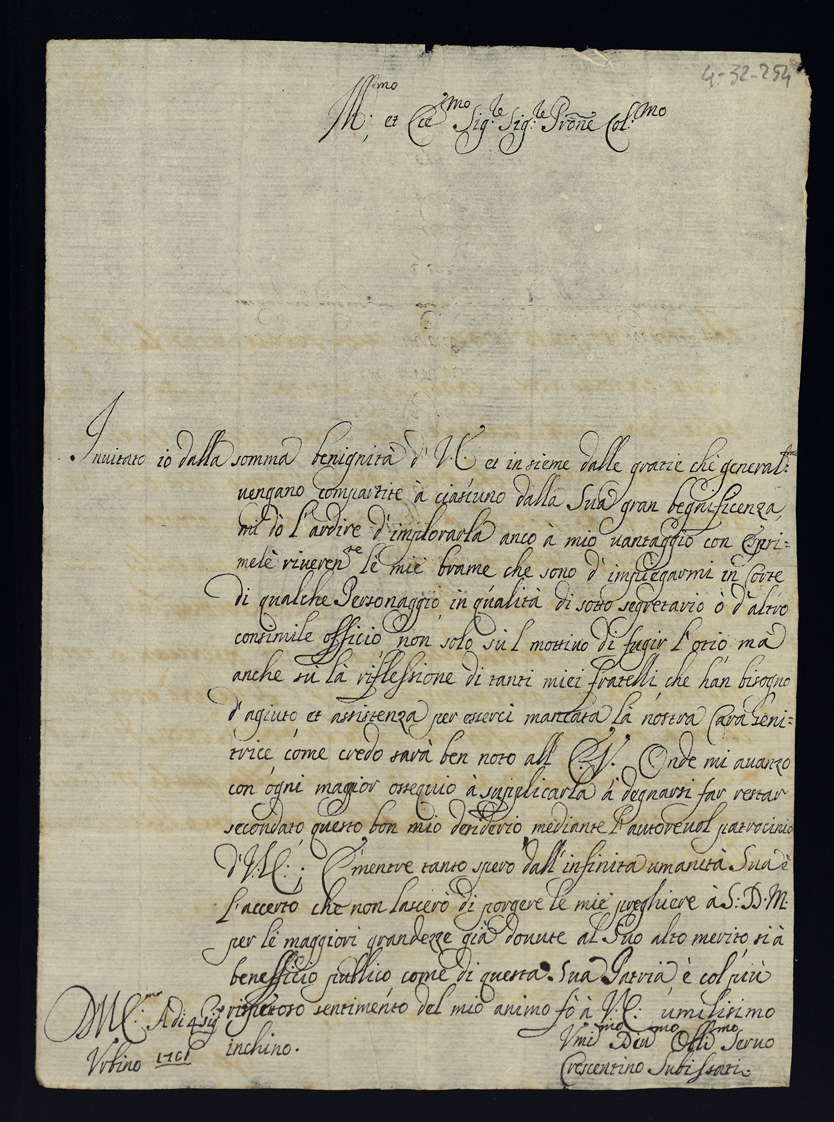 4-32-254
Ill:mo et Ecc:mo Sig:re Sig:re Prōne Col:mo
Invitato io dalla somma benignità d' V.E. et insieme dalle gratie che general:te
vengano compartite à ciascuno dalla Sua gran begnificenza,
mi dò l'ardire d'implorarla anco à mio vantaggio con Espri=
melè riveren:te le mie brame che sono d'impiegarmi in Corte
di qualche Personaggio in qualità di sotto segretario ò d'altro
consimile officio non solo sù l mottivo di fugir l'otio mà
anche sù là riflessione di tanti miei fratelli, che hàn bisogno
d'agiuto et assistenza per esserci mancata là nostra Carà Geni=
trice còme credo sarà ben noto all' E.V. Onde mi avanzo
con ògni magior ossequio à suplicarla à degnarsi far restar
secondato questo bon mio desiderio mediante l'autorevol patrocinio
d'V.E: ; E mentre tanto spero dall'infinita umanità Sua è
l'accerto che non lascerò di porgere le mie preghiere à S: D: M:
per lè maggiori grandezze già dovute al Suo alto merito si à
benefficio publico come di questa Sua Patria è col più
rispetoso sentimento del mio animo fò à V.E: umilisimo
inchino.
D V E: Adi 4
Urbino 1701
Umi:mo Deu:mo Obli:mo Servo
Crescentino Subissati